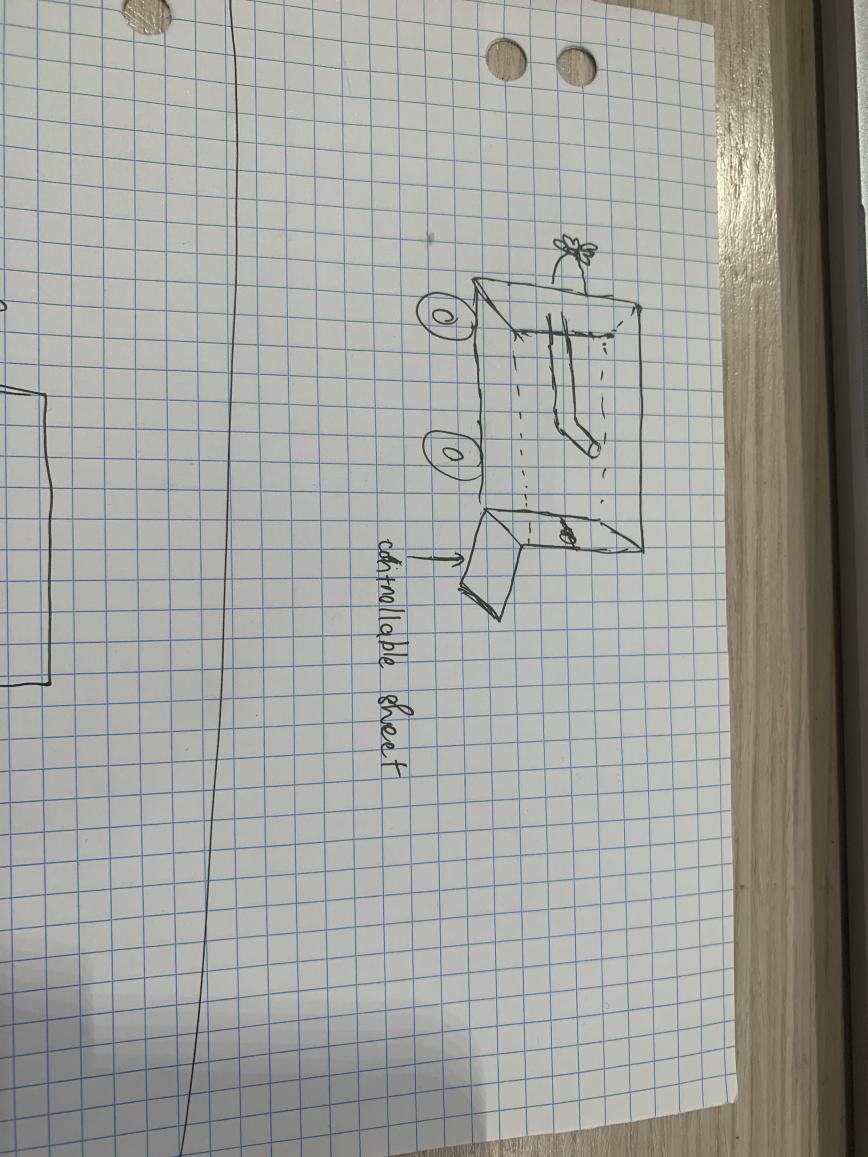 controllable sheet